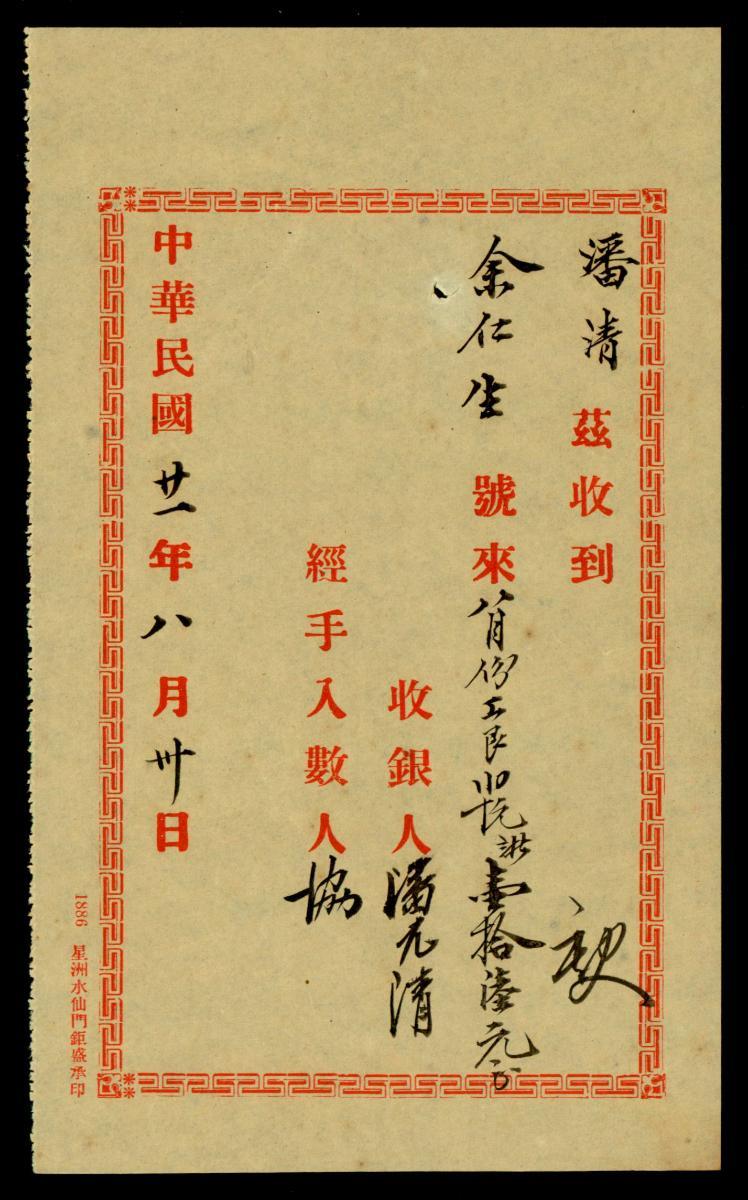 潘清 茲收到
余仁生 號來 八月份工艮 壹拾陸元
收銀人 潘九清
經手入數人 協
中華民國廿一年八月卅日
1886 星洲水仙門鉅盛承印